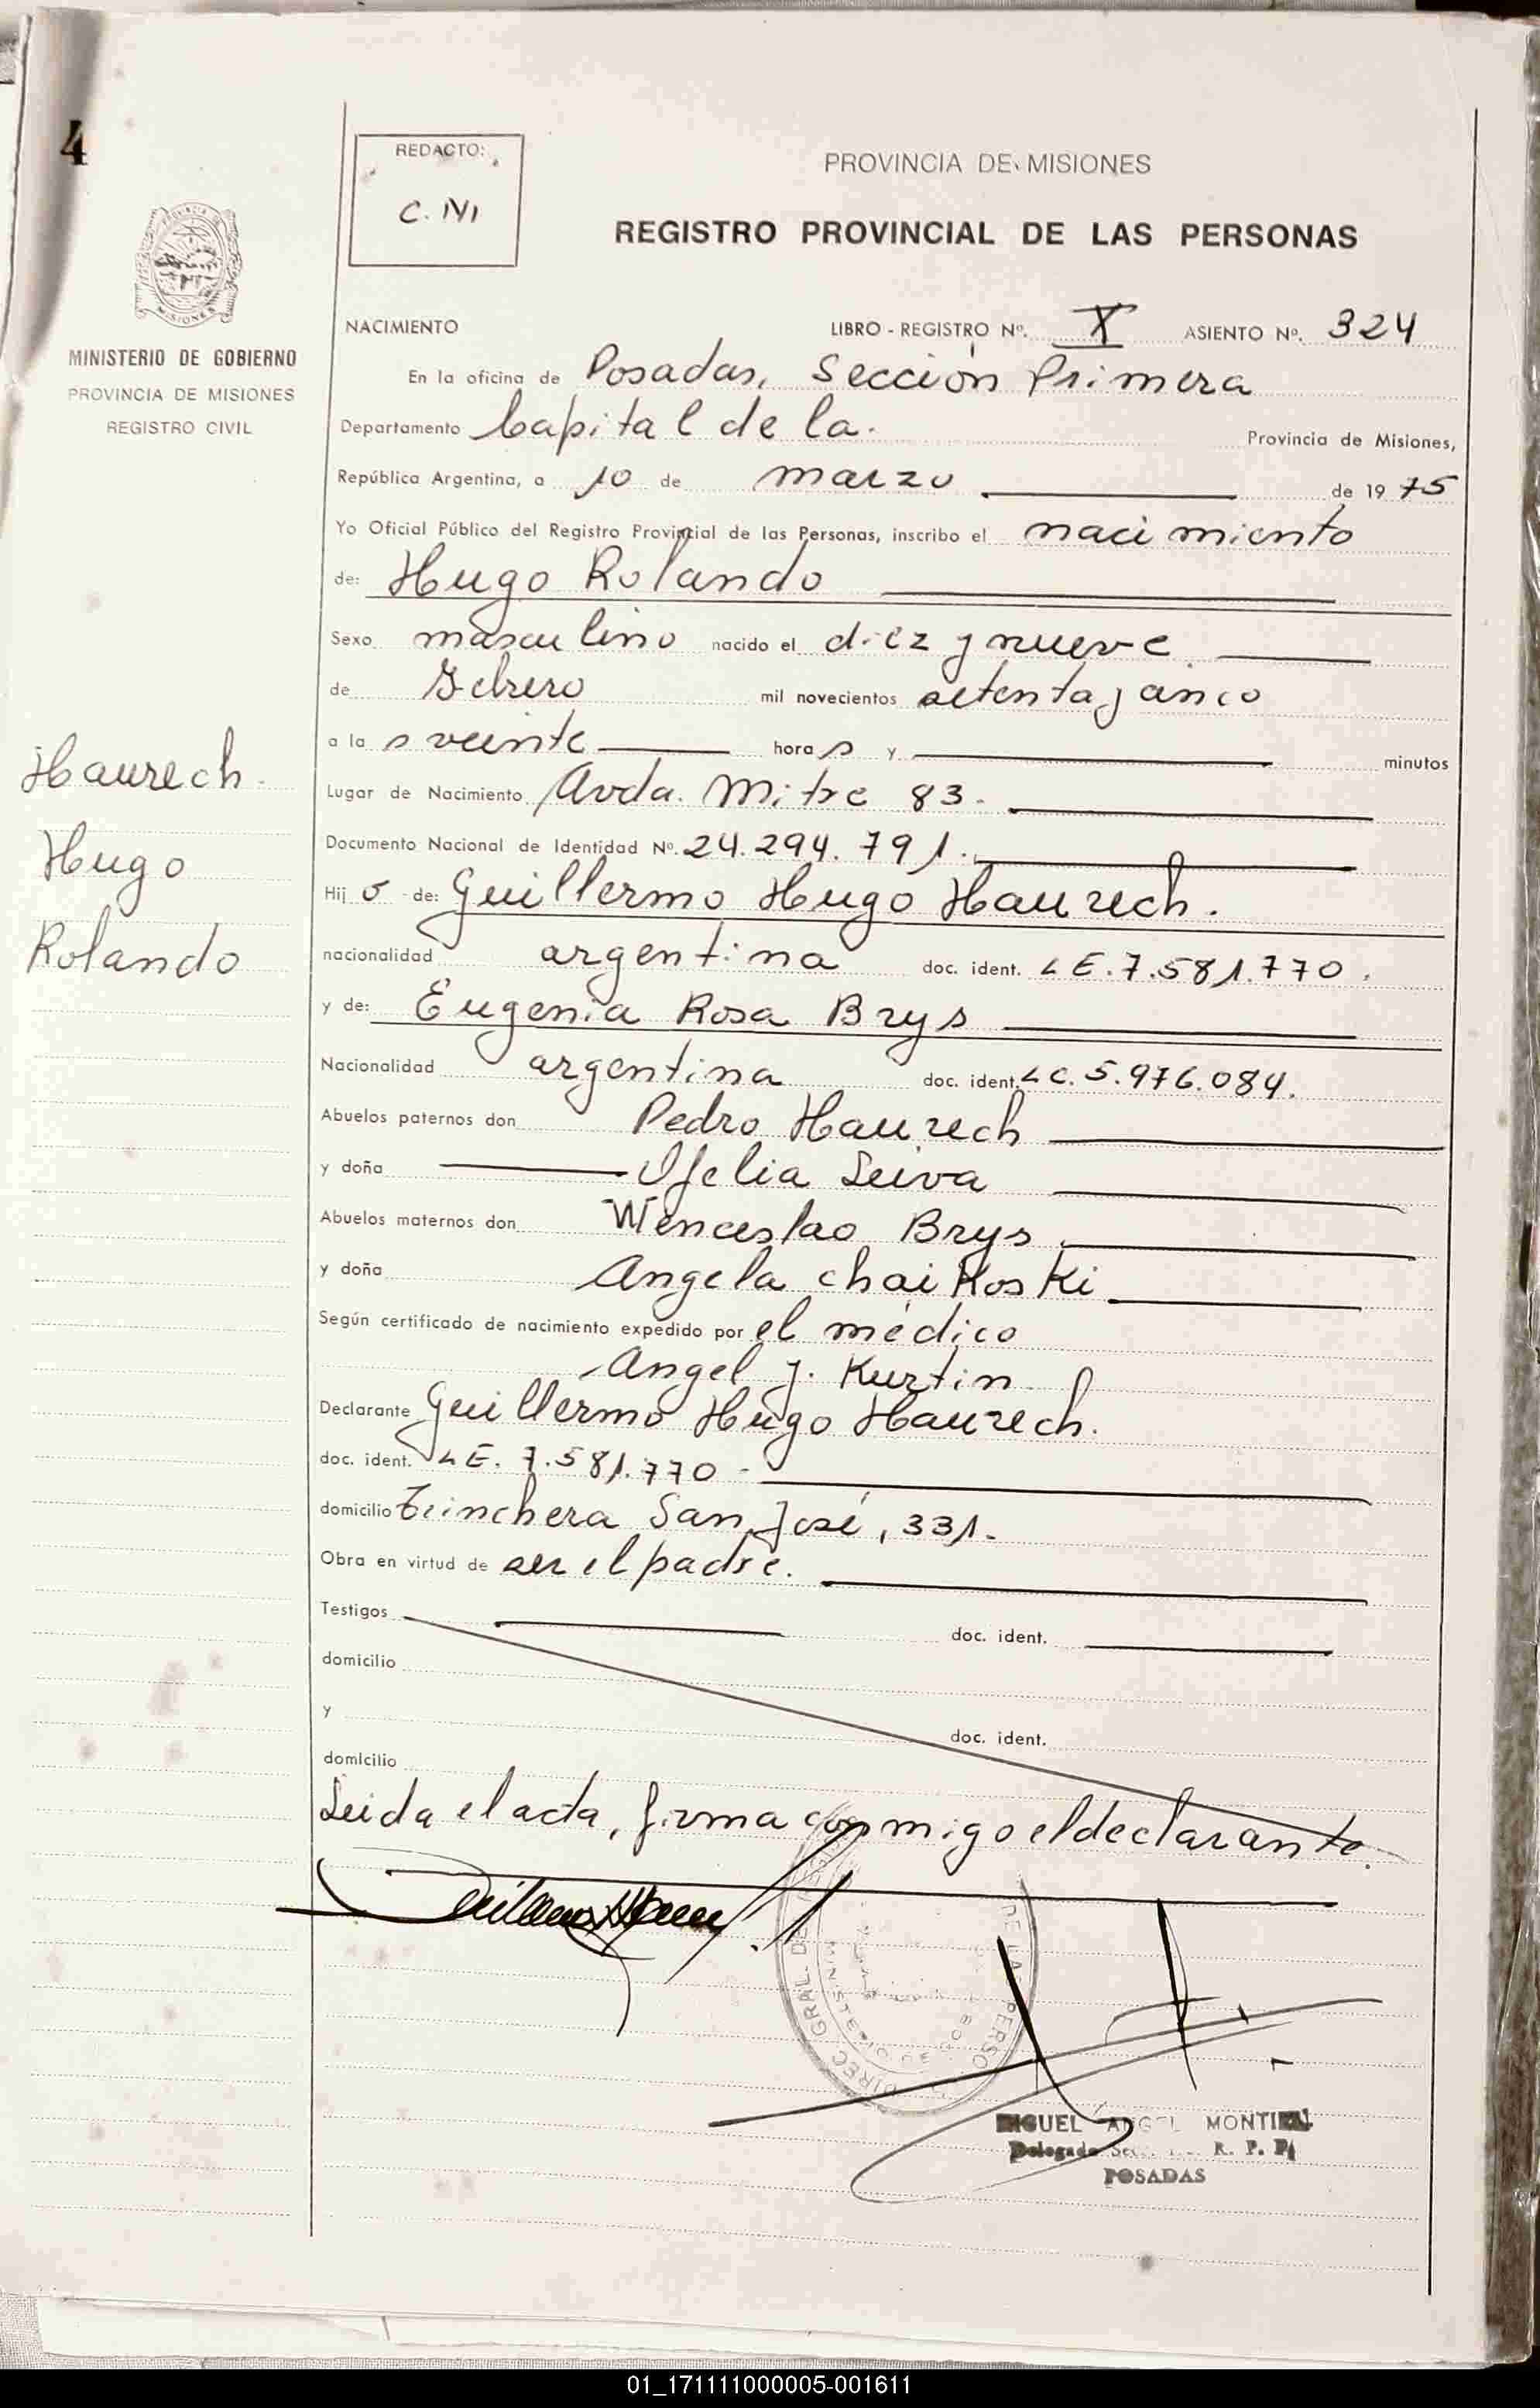 4
REDACTO:
C. M
PROVINCIA DE MISIONES
REGISTRO PROVINCIAL DE LAS PERSONAS
MINISTERIO DE GOBIERNO
PROVINCIA DE MISIONES
REGISTRO CIVIL
Haurech
Hugo
Rolando
NACIMIENTO LIBRO - REGISTRO Nº. X ASIENTO Nº. 324
En la oficina de Posadas, Sección Primera
Departamento Capital de la. Provincia de Misiones,
República Argentina, a 10 de marzo de 1975
Yo Oficial Público del Registro Provincial de las Personas, inscribo el nacimiento
de: Hugo Rolando
Sexo masculino nacido el diez y nueve
de Febrero mil novecientos setenta y cinco
a la s veinte hora s y minutos
Lugar de Nacimiento Avda. Mitre 83.
Documento Nacional de Identidad Nº. 24.294.791.
Hij o de: Guillermo Hugo Haurech.
nacionalidad argentina doc. ident. LE. 7.581.770.
y de: Eugenia Rosa Brys
Nacionalidad argentina doc. ident. LC. 5.976.084.
Abuelos paternos don Pedro Haurech
y doña Ofelia Leiva
Abuelos maternos don Wenceslao Brys
y doña Angela Chaikoski
Según certificado de nacimiento expedido por el médico
Angel J. Kurtin
Declarante Guillermo Hugo Haurech.
doc. ident. LE. 7.581.770-
domicilio Trinchera San José, 331.
Obra en virtud de ser el padre.
Testigos doc. ident.
domicilio
y doc. ident.
domicilio
Leida el acta, firma conmigo el declarante.
DIREC GRAL. DE
MIGUEL ANGEL MONTIEL
Delegado R. P. P.
POSADAS
01_171111000005-001611